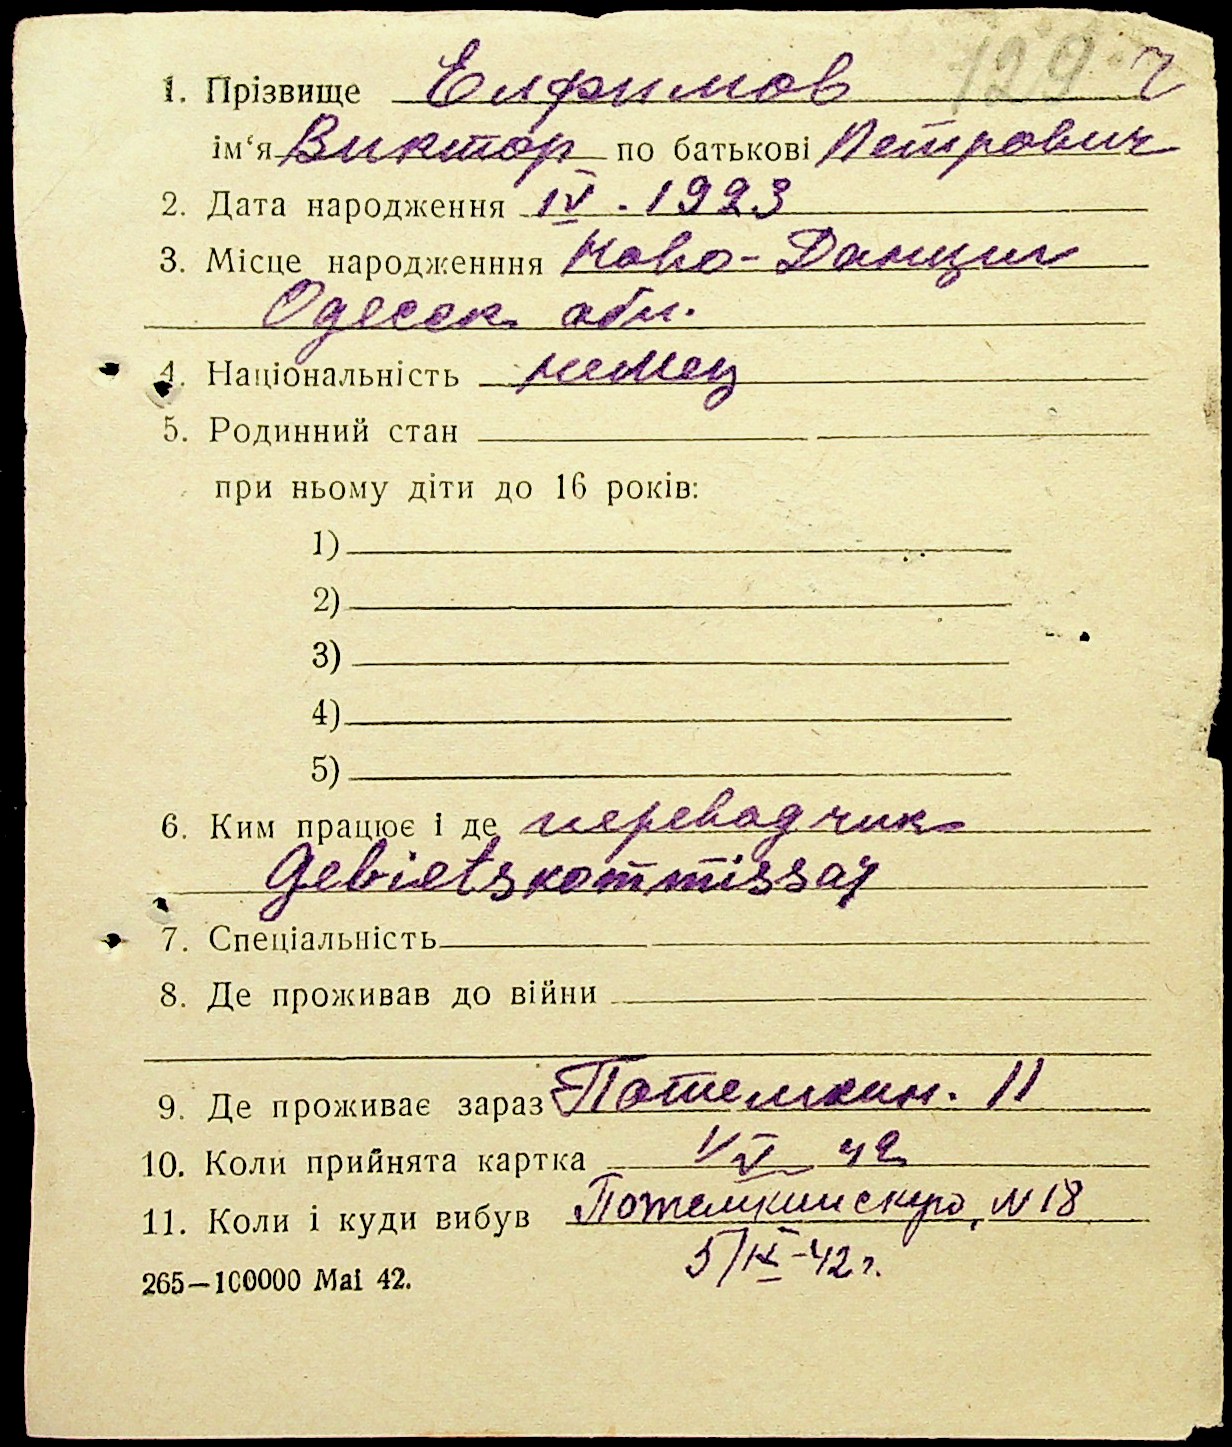 129 ч
1. Прізвище Елфимов
ім‘я Виктор по батькові Петрович
2. Дата народження IV . 1923
3. Місце народженння Ново-Данциг
Одесск. обл.
4. Національність немец
5. Родинний стан
при ньому діти до 16 років:
1)
2)
3)
4)
5)
6. Ким працює і де переводчик
Gebietskommissar
7. Спеціальність
8. Де проживав до війни
9. Де проживає зараз Потемкин. 11
10. Коли прийнята картка V 42
11. Коли і куди вибув Потемкинскую, N 18
5/IX-42 г.
265—100000 Mai 42.